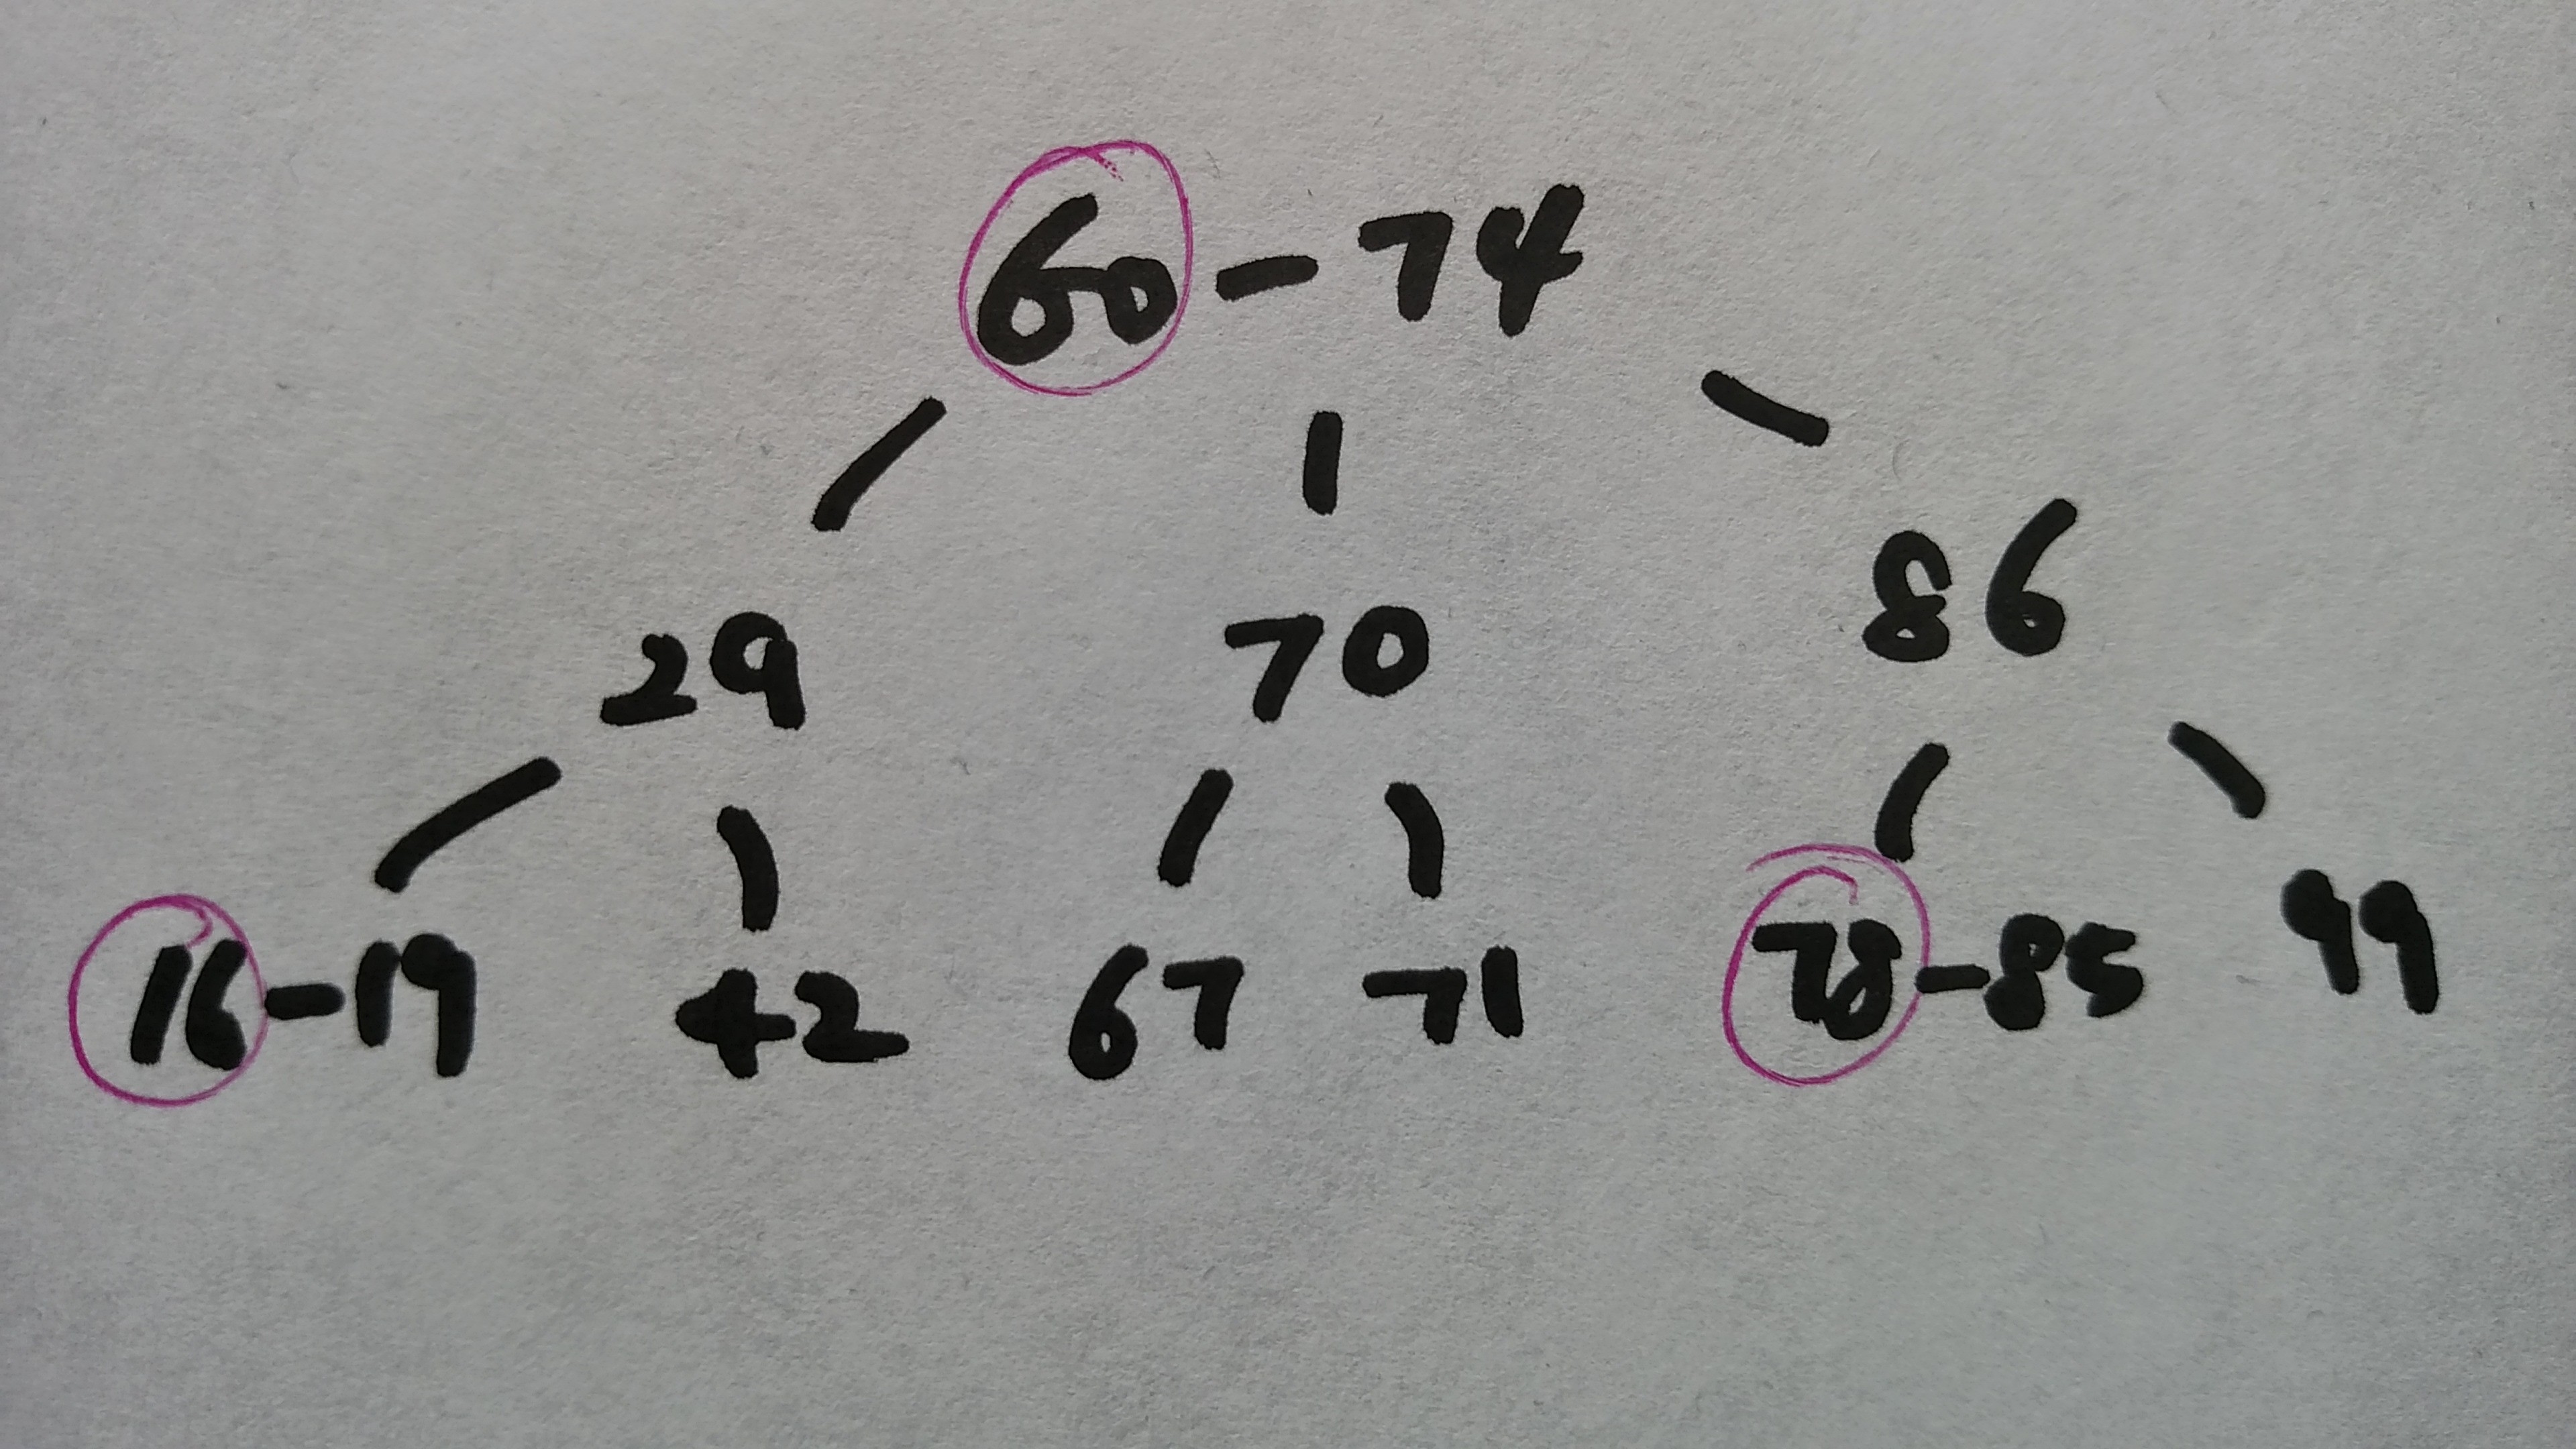 60-74
29 70 86
16-19 42 67 71 78-85 99